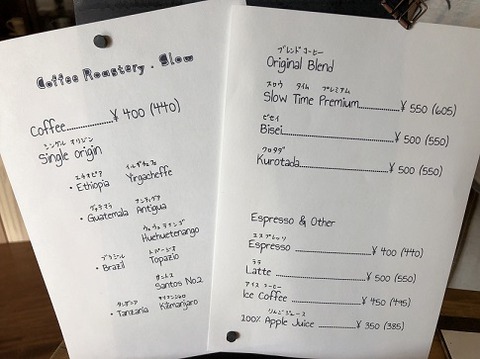 Coffee Roastery . Slow
Coffee..............¥ 400 (440)
シングル オリジン
Single origin
エチオピア イルガチェフェ
• Ethiopia Yirgacheffe
グァテマラ アンティグア
• Guatemala Antigua
ウェウェテナンゴ
Huehueterango
ブラジル トパージオ
• Brazil Topazio
サントス
Santos No.2
タンザニア キリマンジャロ
• Tanzania Kilimanjaro
ブレンド コーヒー
Original Blend
スロウ タイム プレミアム
Slow Time Premium................¥ 550 (605)
ビセイ
Bisei................¥ 500 (550)
クロタダ
Kurotada................¥ 500 (550)
Espresso & Other
エスプレッソ
Espresso ................¥ 400 (440)
ラテ
Latte ................¥ 500 (550)
アイス コーヒー
Ice Coffee ................¥ 450 (495)
りんごジュース
100% Apple Juice ................¥ 350 (385)